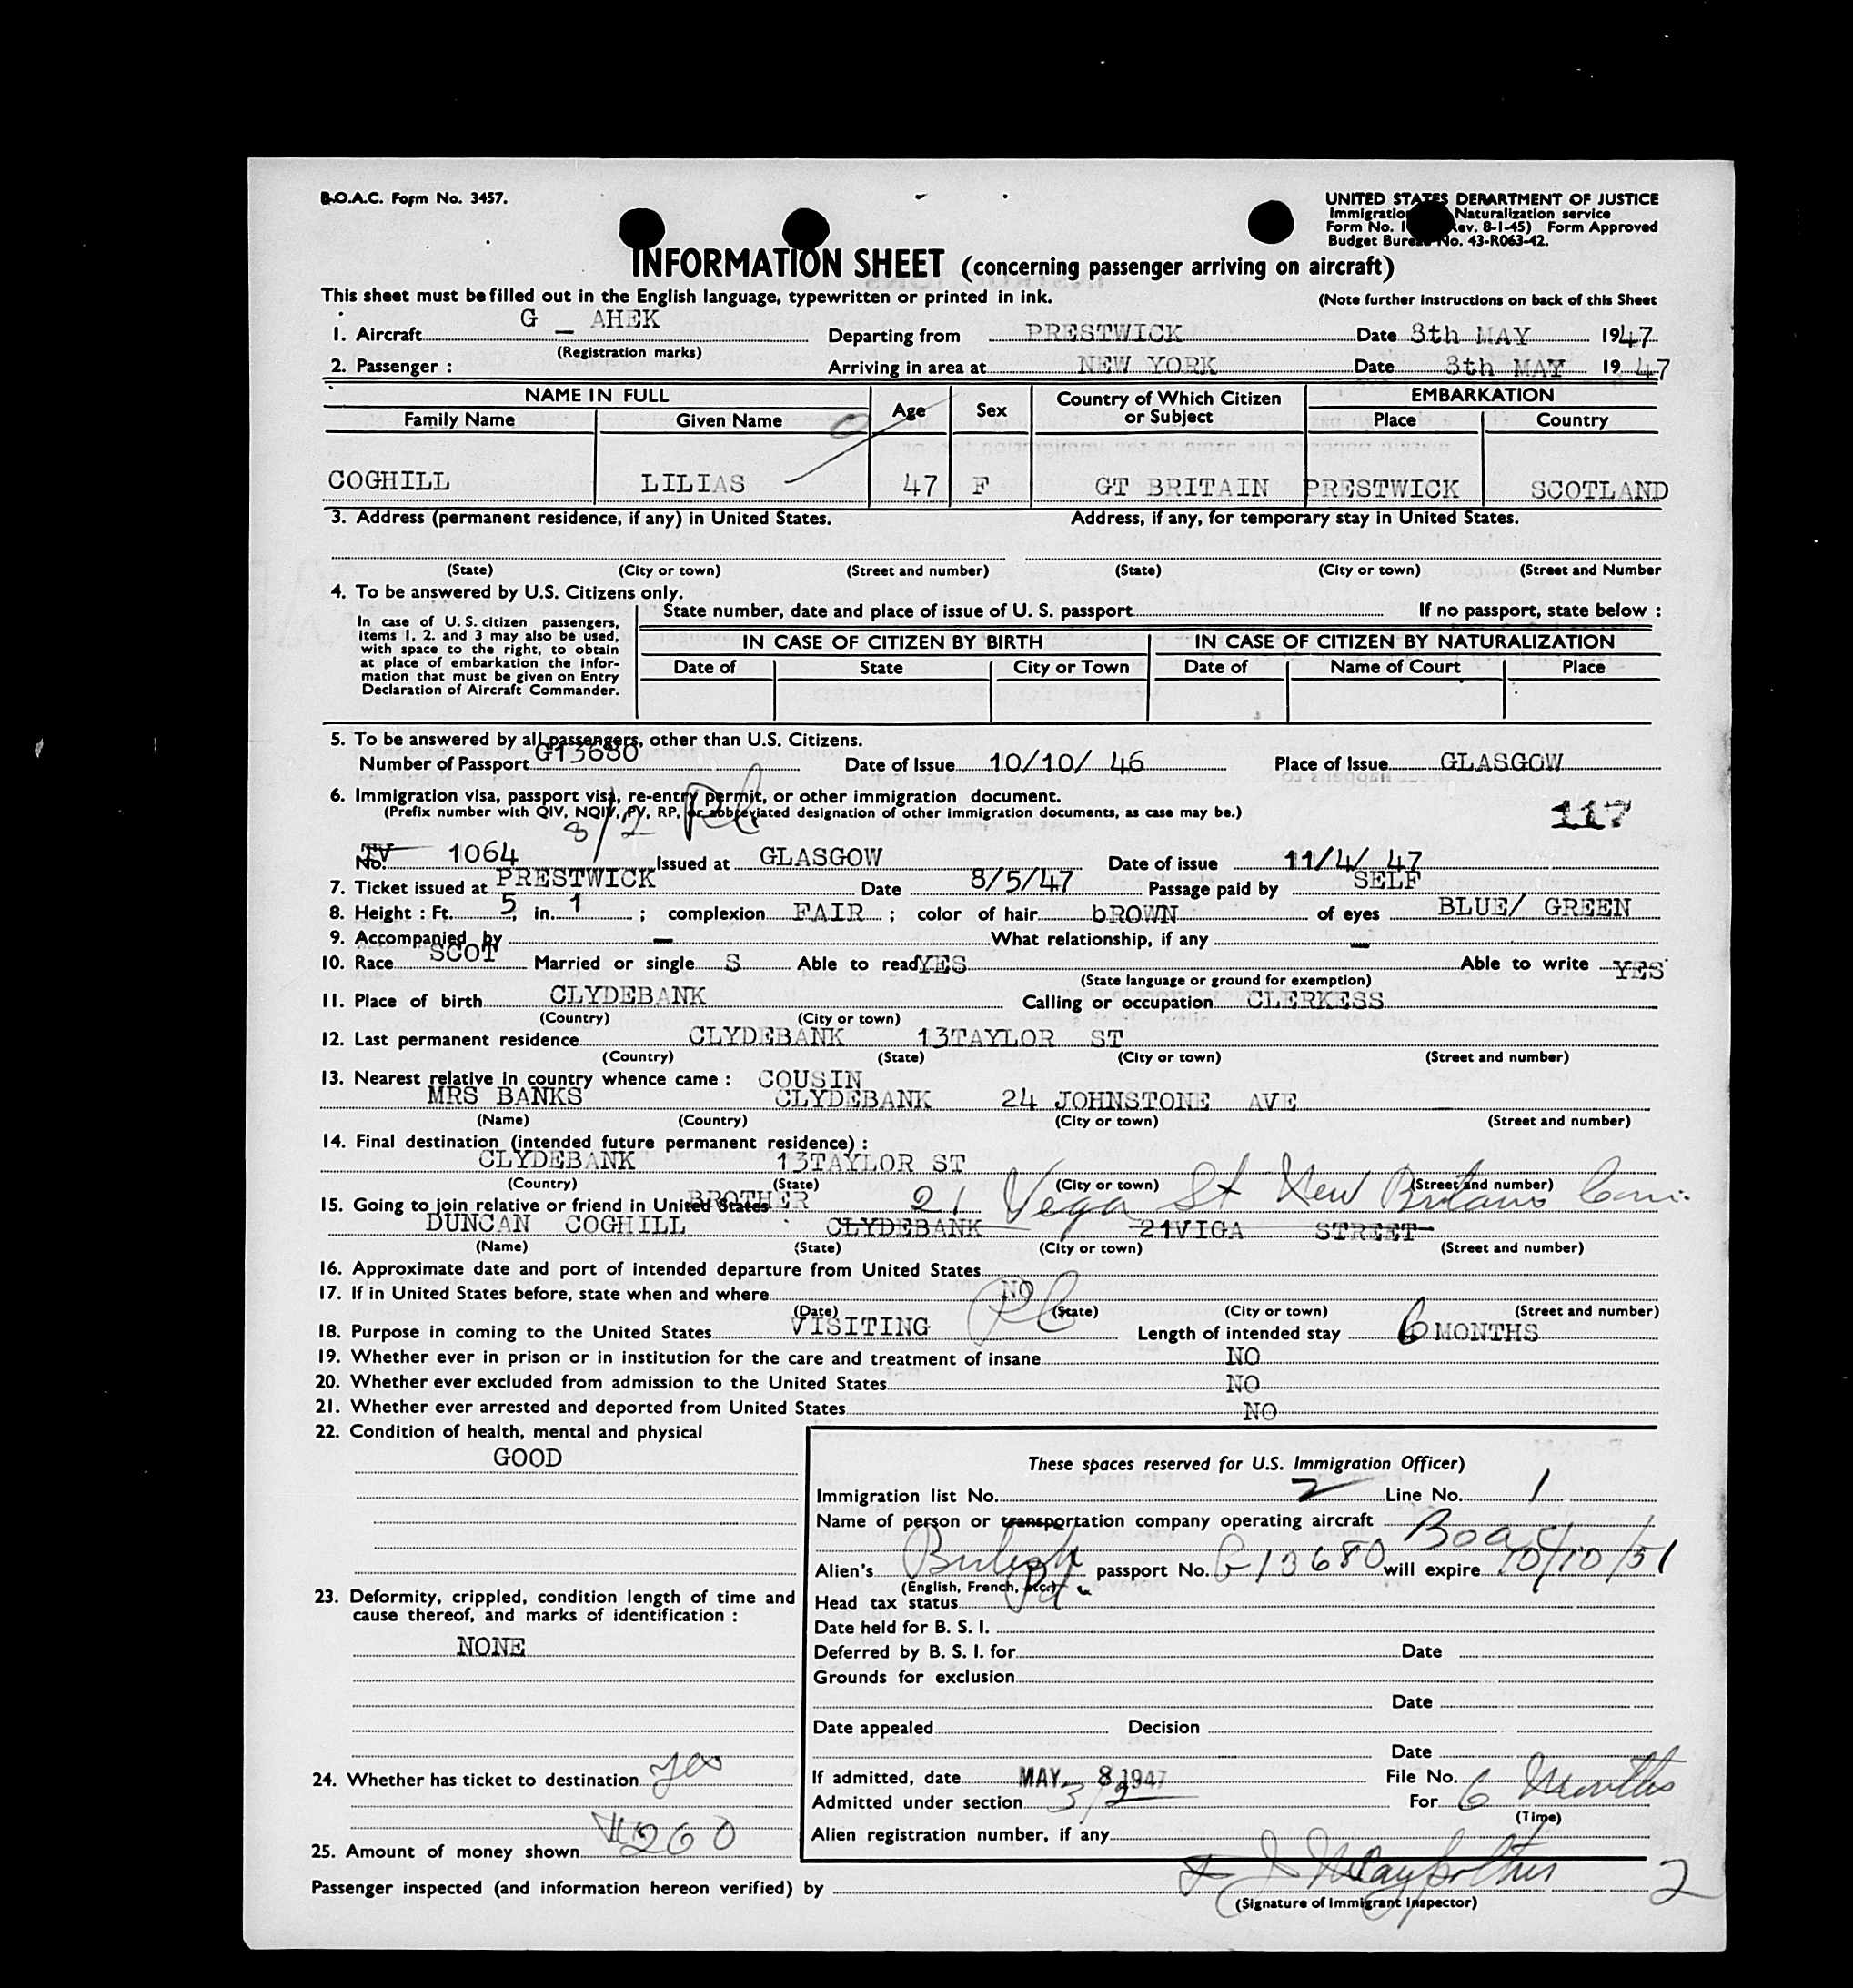 B.O.A.C. Form No. 3457.
UNITED STATES DEPARTMENT OF JUSTICE
Immigration Naturalization service
Form No. I Rev. 8-1-45) Form Approved
Budget Bureau No. 43-R063-42.
INFORMATION SHEET (concerning passenger arriving on aircraft)
This sheet must be filled out in the English language, typewritten or printed in ink. (Note further instructions on back of this Sheet
1. Aircraft G _ AHEK Departing from PRESTWICK Date 8th MAY 1947
(Registration marks)
2. Passenger : Arriving in area at NEW YORK Date 8th MAY 19 47
NAME IN FULL Age Sex Country of Which Citizen or Subject EMBARKATION
Family Name Given Name Place Country
COGHILL LILIAS 47 F GT BRITAIN PRESTWICK SCOTLAND
3. Address (permanent residence, if any) in United States. Address, if any, for temporary stay in United States.
(State) (City or town) (Street and number) (State) (City or town) (Street and Number
4. To be answered by U.S. Citizens only.
In case of U. S. citizen passengers,
items 1, 2. and 3 may also be used,
with space to the right, to obtain
at place of embarkation the infor-
mation that must be given on Entry
Declaration of Aircraft Commander.
State number, date and place of issue of U. S. passport If no passport, state below :
IN CASE OF CITIZEN BY BIRTH IN CASE OF CITIZEN BY NATURALIZATION
Date of State City or Town Date of Name of Court Place
5. To be answered by all passengers, other than U.S. Citizens.
Number of Passport G13680 Date of Issue 10/10/ 46 Place of Issue GLASGOW
6. Immigration visa, passport visa, re-entry permit, or other immigration document.
(Prefix number with QIV, NQIV, PV, RP, or abbreviated designation of other immigration documents, as case may be.)
3/2 117
No. TV 1064 Issued at GLASGOW Date of issue 11/4/ 47
7. Ticket issued at PRESTWICK Date 8/5/47 Passage paid by SELF
8. Height : Ft. 5, in. 1 ; complexion FAIR ; color of hair bROWN of eyes BLUE/ GREEN
9. Accompanied by - What relationship, if any -
10. Race SCOT Married or single S Able to read YES Able to write YES
(State language or ground for exemption)
11. Place of birth CLYDEBANK Calling or occupation CLERKESS
(Country) (City or town)
12. Last permanent residence CLYDEBANK 13TAYLOR ST
(Country) (State) (City or town) (Street and number)
13. Nearest relative in country whence came : COUSIN
MRS BANKS CLYDEBANK 24 JOHNSTONE AVE
(Name) (Country) (City or town) (Street and number)
14. Final destination (intended future permanent residence) :
CLYDEBANK 13TAYLOR ST
(Country) (State) (City or town) (Street and number)
15. Going to join relative or friend in United States BROTHER 21 Vega St New Britain Conn.
DUNCAN COGHILL CLYDEBANK 21VIGA STREET
(Name) (State) (City or town) (Street and number)
16. Approximate date and port of intended departure from United States
17. If in United States before, state when and where NO
(Date) (State) (City or town) (Street and number)
18. Purpose in coming to the United States VISITING Length of intended stay 6 MONTHS
19. Whether ever in prison or in institution for the care and treatment of insane NO
20. Whether ever excluded from admission to the United States NO
21. Whether ever arrested and deported from United States NO
22. Condition of health, mental and physical
GOOD
23. Deformity, crippled, condition length of time and
cause thereof, and marks of identification :
NONE
24. Whether has ticket to destination yes
25. Amount of money shown $260
These spaces reserved for U.S. Immigration Officer)
Immigration list No. 2 Line No. 1
Name of person or transportation company operating aircraft BOAC
Alien's British passport No. G 13680 will expire 10/10/51
(English, French, etc.)
Head tax status Pd.
Date held for B. S. I.
Deferred by B. S. I. for Date
Grounds for exclusion
Date
Date appealed Decision
Date
If admitted, date MAY 8 1947 File No.
Admitted under section 3/2 For 6 Months
(Time)
Alien registration number, if any
Passenger inspected (and information hereon verified) by 2
(Signature of Immigrant Inspector)